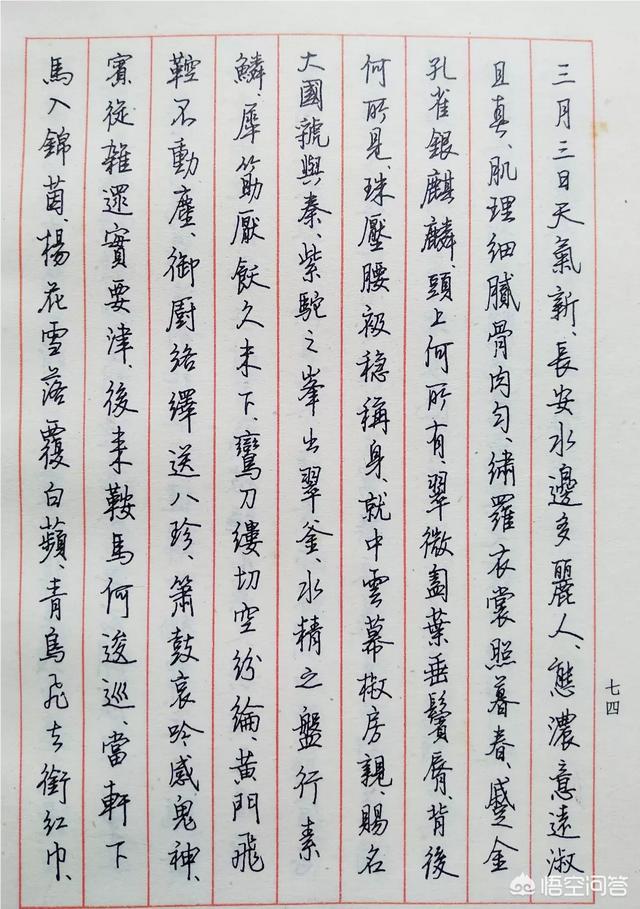 三月三日天氣新、長安水邊多麗人、態濃意遠淑
且真、肌理細膩骨肉勻、繡羅衣裳照暮春、蹙金
孔雀銀麒麟、頭上何所有、翠微㔩葉垂鬢脣、背後
何所見、珠壓腰衱穏稱身、就中雲幕椒房親、賜名
大國虢與秦、紫駝之峯出翠釜、水精之盤行素
鱗、犀筯厭飫久未下、鸞刀縷切空紛綸、黃門飛
鞚不動塵、御厨絡繹送八珍、簫鼓哀吟感鬼神、
賓從雜遝實要津、後來鞍馬何逡巡、當軒下
馬入錦茵、楊花雪落覆白蘋、青鳥飛去銜紅巾、
七四
悟空问答